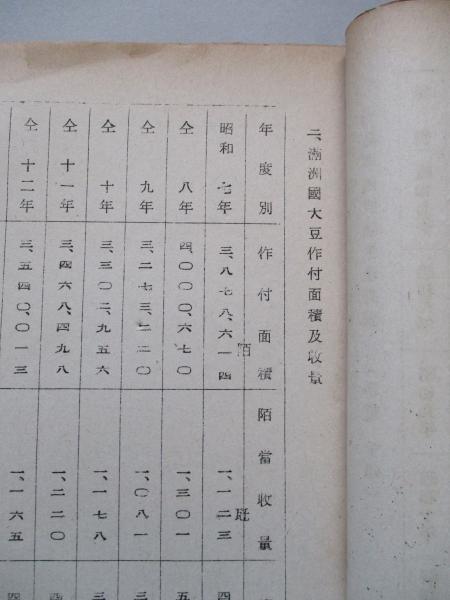 二、滿洲國大豆作付面積及收量
年度別 作付面積 陌當收量
昭和 七年 三、八七八、六一四陌 一、一二三瓩 四
仝 八年 四、〇〇〇、六七〇 一、三〇一 五
仝 九年 三、二七三、二二〇 一、〇八一 三
仝 十年 三、三〇二、九五六 一、一七八 三
仝 十一年 三、四六八、四九八 一、二二〇
仝 十二年 三、五四〇、〇一三 一、一六五 四